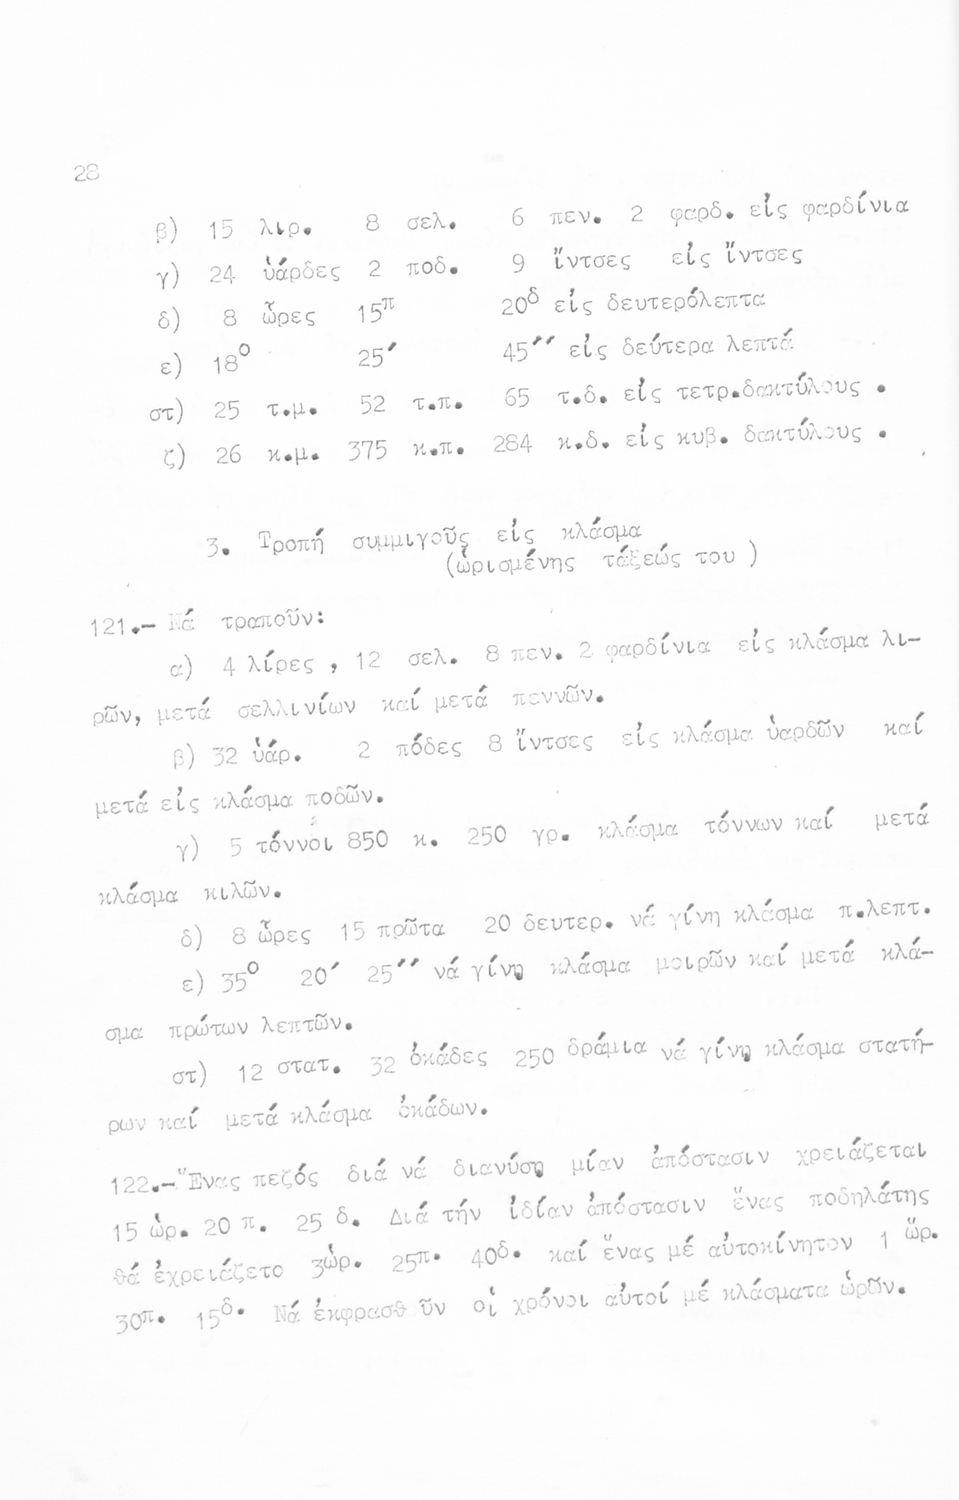 28
β) 15 λιρ. 8 σελ. 6 πεν. 2 φαρδ. εἰς φαρδίνια
γ) 24 ὑάρδες 2 ποδ. 9 ἴντσες εἰς ἴντσες
δ) 8 ὧρες 15π 20δ εἰς δευτερόλεπτα
ε) 18ο 25′ 45′′ εἰς δεύτερα λεπτά
στ) 25 τ.μ. 52 τ.π. 65 τ.δ. εἰς τετρ.δακτύλους .
ζ) 26 κ.μ. 375 κ.π. 284 κ.δ. εἰς κυβ. δακτύλους .
3. Τροπή συμμιγοῦς εἰς κλάσμα
(ὡρισμένης τάξεώς του )
121.- Νά τραποῦν:
α) 4 λίρες , 12 σελ. 8 πεν. 2 φαρδίνια εἰς κλάσμα λι-
ρῶν, μετά σελλινίων καί μετά πεννῶν.
β) 32 ὑάρ. 2 πόδες 8 ἴντσες εἰς κλάσμα ὑαρδῶν καί
μετά εἰς κλάσμα ποδῶν.
γ) 5 τόννοι 850 κ. 250 γρ. κλάσμα τόννων καί μετά
κλάσμα κιλῶν.
δ) 8 ὧρες 15 πρῶτα 20 δευτερ. νά γίνη κλάσμα π.λεπτ.
ε) 35ο 20′ 25′′ νά γίνῃ κλάσμα μοιρῶν καί μετά κλά-
σμα πρώτων λεπτῶν.
στ) 12 στατ. 32 ὀκάδες 250 δράμια νά γίνῃ κλάσμα στατή-
ρων καί μετά κλάσμα ὀκάδων.
122.-Ἕνας πεζός διά νά διανύσῃ μίαν ἀπόστασιν χρειάζεται
15 ὡρ. 20 π. 25 δ. Διά τήν ἰδίαν ἀπόστασιν ἕνας ποδηλάτης
θά ἐχρειάζετο 3ὡρ. 25π. 40δ. καί ἕνας μέ αὐτοκίνητον 1 ὥρ.
30π. 15δ. Νά ἐκφρασθ ῦν οἱ χρόνοι αὐτοί μέ κλάσματα ὡρῶν.